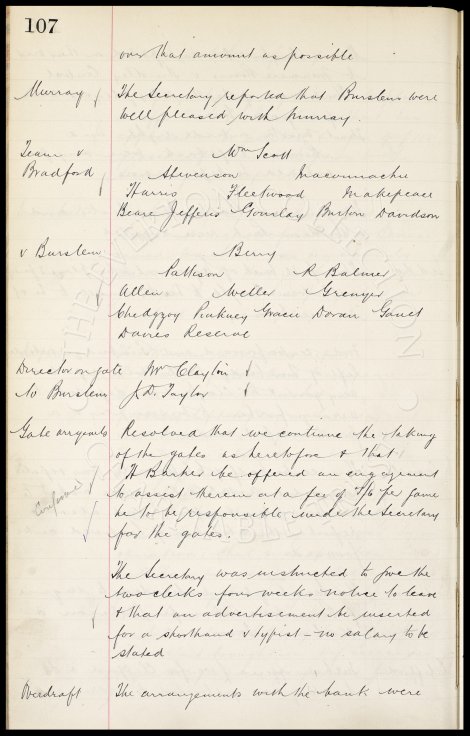 107
over that amount as possible
Murray The Secretary reported that Burslem were
well pleased with Murray.
Team v Wm Scott
Bradford Stevenson Maconnachie
Harris Fleetwood Makepeace
Beare Jefferis Gourlay Burton Davidson
v Burslem Berry
Pattison R Balmer
Allen Weller Grenyer
Chedgzoy Pinkney Gracie Doran Gault
Davies Reserve
Director on gate Mr Clayton
to Burslem J.D. Taylor
Gate arrgmts Resolved that we continue the taking
of the gates as heretofore & that
H Barker be offered an engagement
to assist therein at a fee of per game
he to be responsible under the Secretary
for the gates.
The Secretary was instructed to give the
two clerks four weeks notice to leave
& that an advertisement be inserted
for a shorthand & typist - no salary to be
stated
Overdraft The arrangements with the bank were